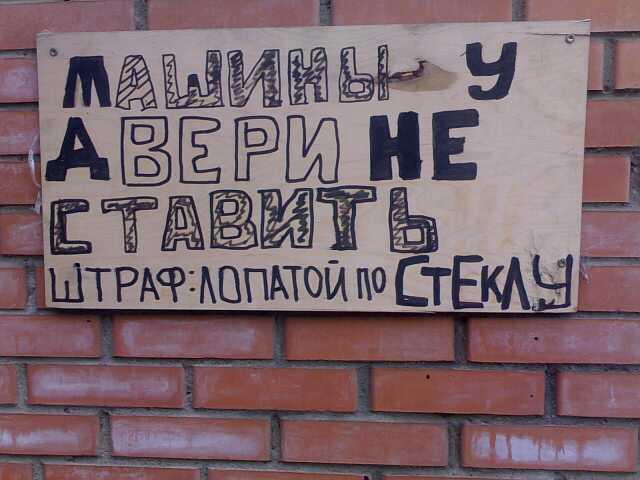 МАШИНЫ У
ДВЕРИ НЕ
СТАВИТЬ
ШТРАФ: ЛОПАТОЙ ПО СТЕКЛУ